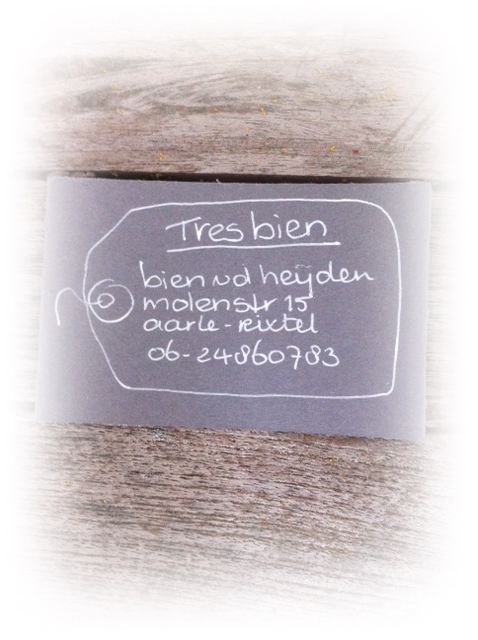 Tres bien
bien vd heijden
molenstr 15
aarle-rixtel
06-24860783